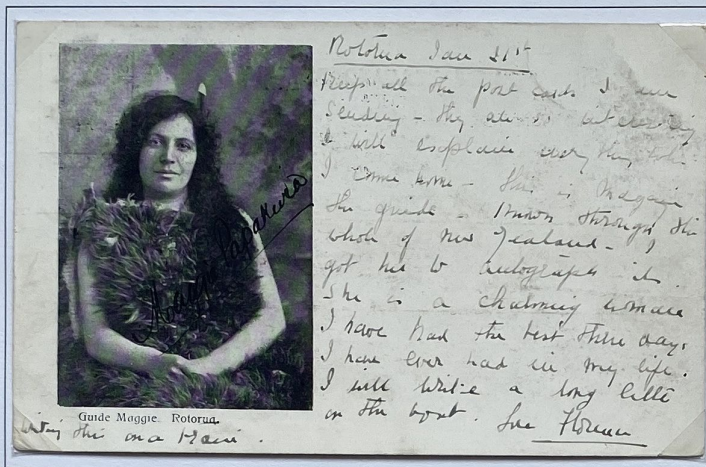 Rotorua Jan 21st
Keep all the post cards I am
sending - they are so interesting
I will explain everything when
I come home - this is Maggie
the guide - known through the
whole of New Zealand - I
got her to autograph it.
She is a charming woman
I have had the best three days
I have ever had in my life.
I will write a long letter
on the boat. Florence
Maggie Papakura
Guide Maggie. Rotorua.
writing this on a train.